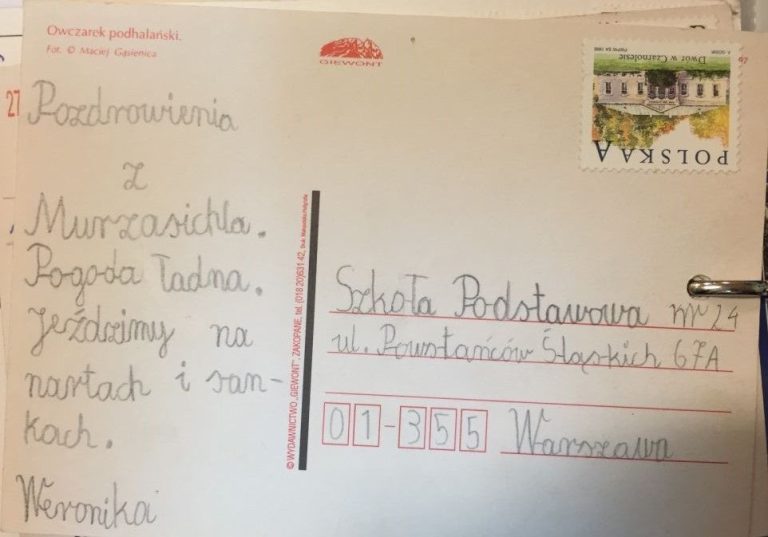 Owczarek podhalański.
Fot. © Maciej Gąsienica
GIEWONT
Dwór w Czarnolesie
POLSKA A
27
Pozdrowienia
z
Murzasichla.
Pogoda ładna.
Jeździmy na
nartach i san-
kach.
Weronika
© WYDAWNICTWO „GIEWONT", ZAKOPANE, tel. (018 20)631 42,
Szkoła Podstawowa nr 24
ul. Powstańców Śląskich 67A
01-355 Warszawa